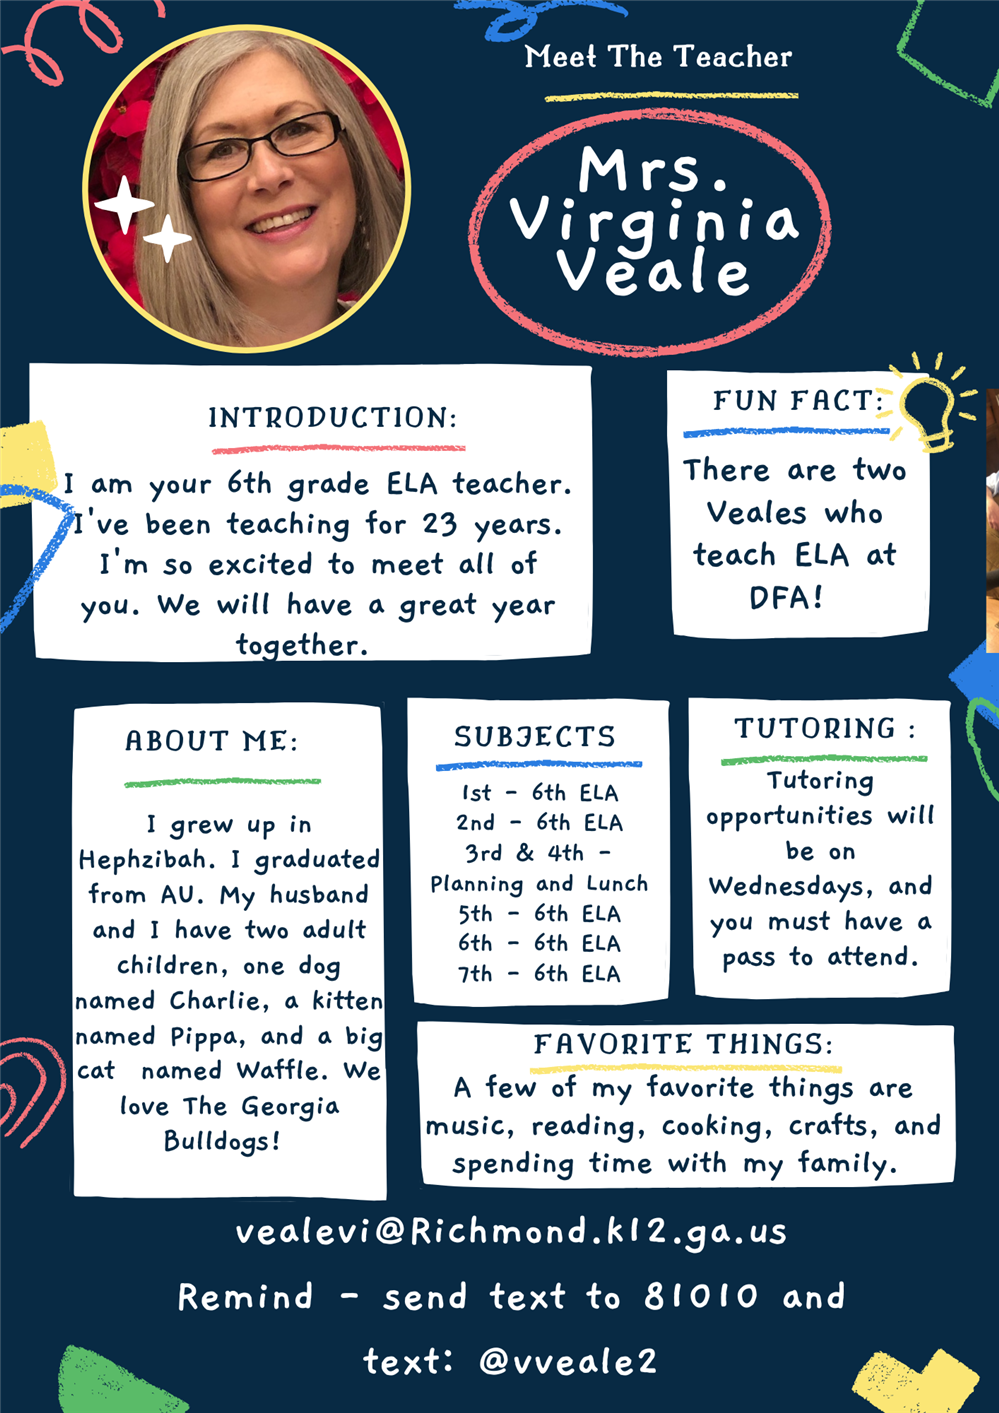 Meet The Teacher
Mrs.
Virginia
Veale
INTRODUCTION:
I am your 6th grade ELA teacher.
I've been teaching for 23 years.
I'm so excited to meet all of
you. We will have a great year
together.
FUN FACT:
There are two
Veales who
teach ELA at
DFA!
ABOUT ME:
I grew up in
Hephzibah. I graduated
from AU. My husband
and I have two adult
children, one dog
named Charlie, a kitten
named Pippa, and a big
cat named Waffle. We
love The Georgia
Bulldogs!
SUBJECTS
1st - 6th ELA
2nd - 6th ELA
3rd & 4th -
Planning and Lunch
5th - 6th ELA
6th - 6th ELA
7th - 6th ELA
TUTORING :
Tutoring
opportunities will
be on
Wednesdays, and
you must have a
pass to attend.
FAVORITE THINGS:
A few of my favorite things are
music, reading, cooking, crafts, and
spending time with my family.
vealevi@Richmond.k12.ga.us
Remind - send text to 81010 and
text: @vveale2